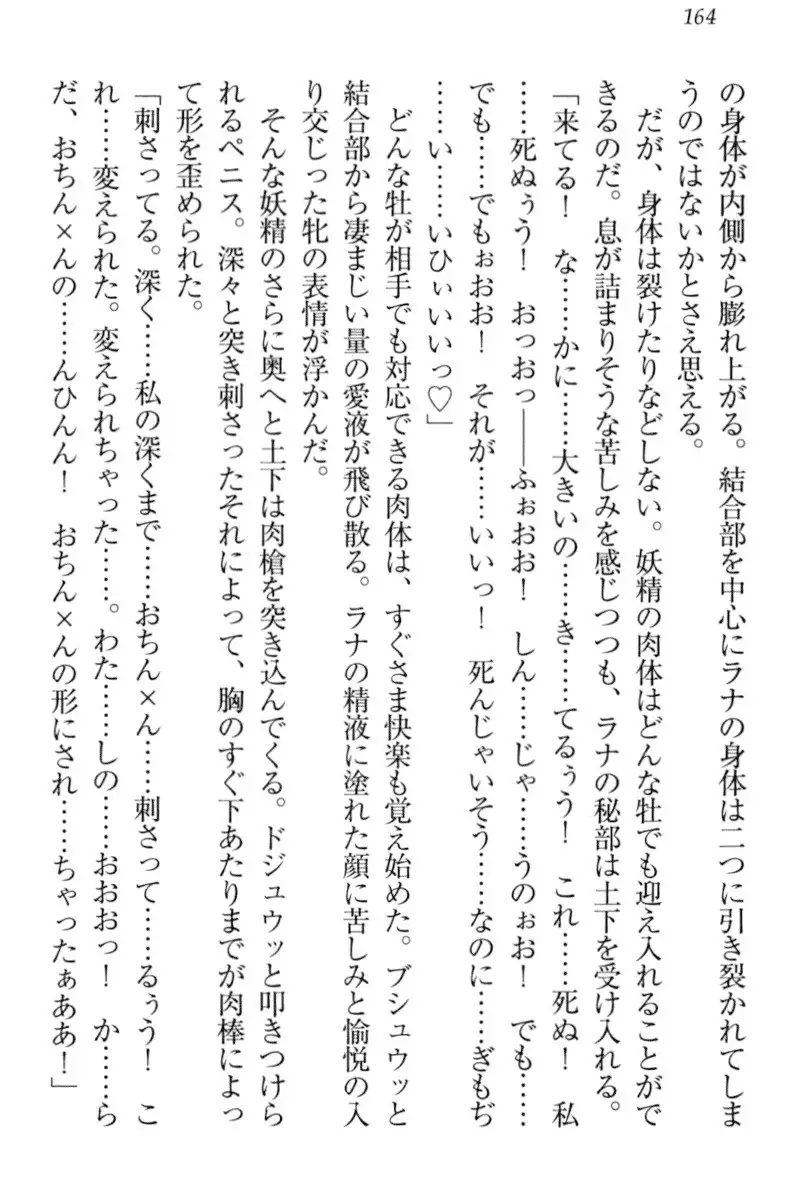 164
の身体が内側から膨れ上がる。結合部を中心にラナの身体は二つに引き裂かれてしま
うのではないかとさえ思える。
だが、身体は裂けたりなどしない。妖精の肉体はどんな牡でも迎え入れることがで
きるのだ。息が詰まりそうな苦しみを感じつつも、ラナの秘部は土下を受け入れる。
「来てる！　な……かに……大きいの……き……てるぅう！　これ……死ぬ！　私
……死ぬぅう！　おっおっ――ふぉおお！　しん……じゃ……うのぉお！　でも……
でも……でもぉおお！　それが……いいっ！　死んじゃいそう……なのに……ぎもぢ
……い……いひぃいいっ♡」
どんな牡が相手でも対応できる肉体は、すぐさま快楽も覚え始めた。ブシュウッと
結合部から凄まじい量の愛液が飛び散る。ラナの精液に塗れた顔に苦しみと愉悦の入
り交じった牝の表情が浮かんだ。
そんな妖精のさらに奥へと土下は肉槍を突き込んでくる。ドジュウッと叩きつけら
れるペニス。深々と突き刺さったそれによって、胸のすぐ下あたりまでが肉棒によっ
て形を歪められた。
「刺さってる。深く……私の深くまで……おちん×ん……刺さって……るぅう！　こ
れ……変えられた。変えられちゃった……。わた……しの……おおおっ！　か……ら
だ、おちん×んの……んひんん！　おちん×んの形にされ……ちゃったぁああ！」